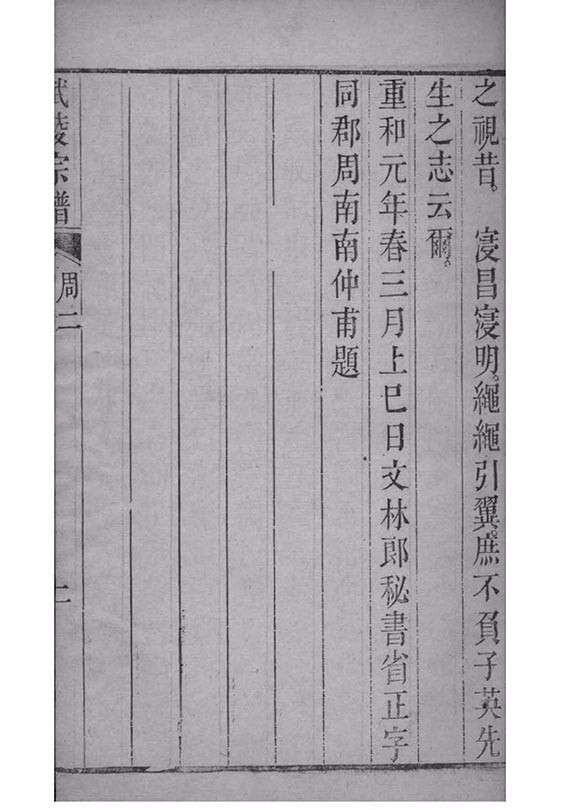 之視昔。寖昌寖明。繩繩引翼。庶不負子英先
生之志云爾。
重和元年春三月上巳日文林郎秘書省正字
同郡周南南仲甫題
武陵宗譜 周二 二